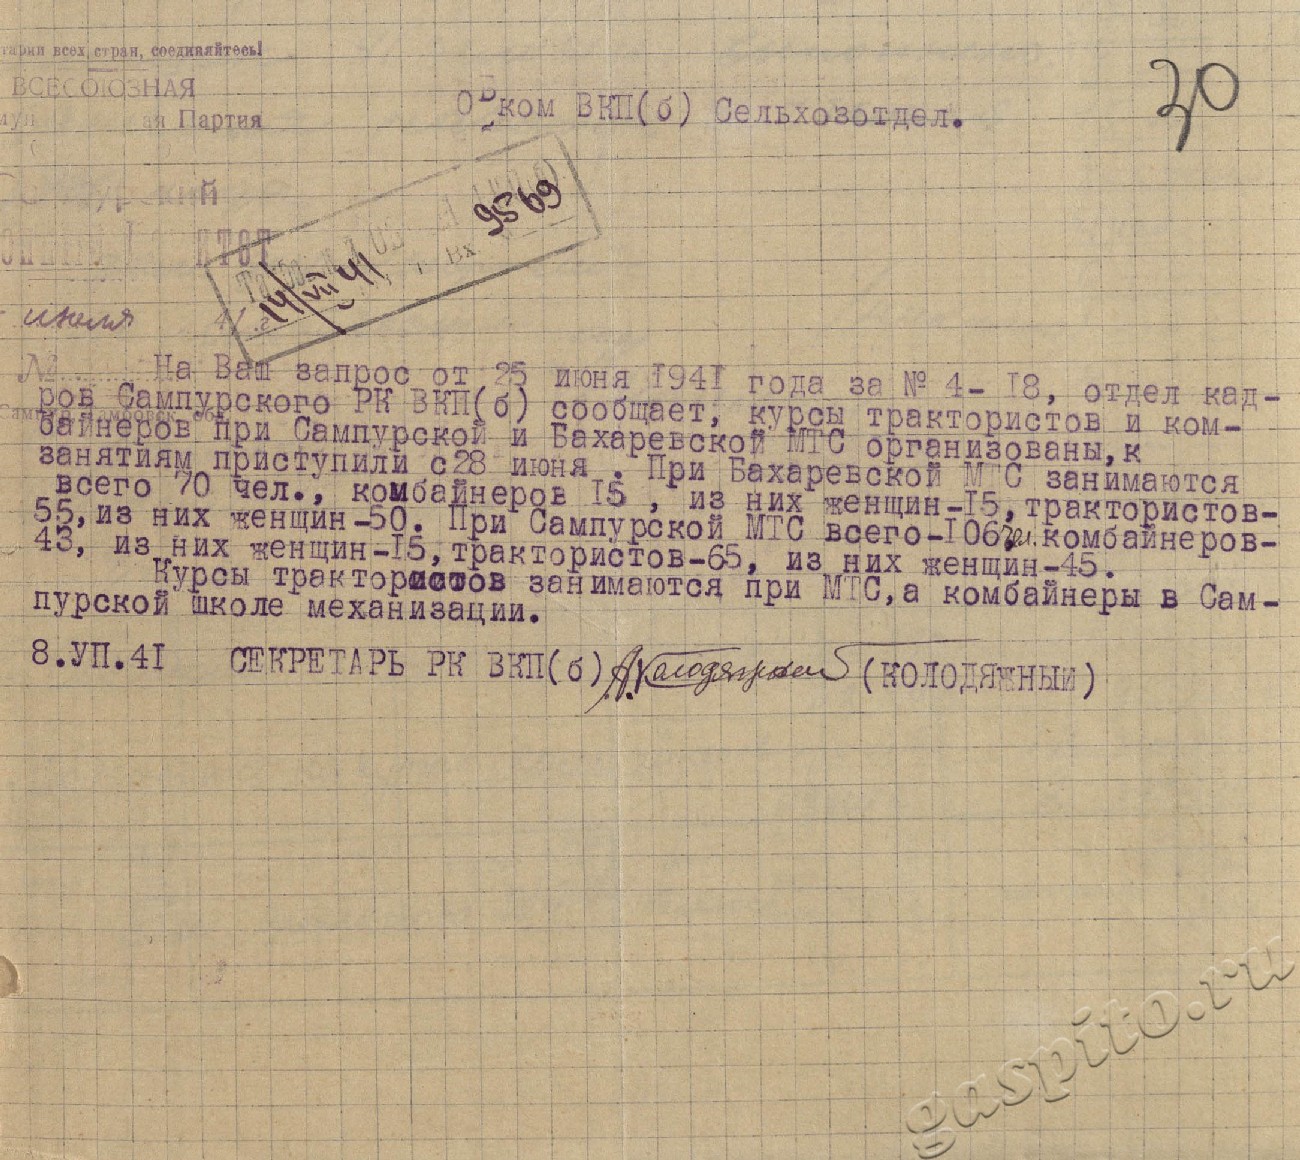 всех стран, соединяйтесь!
ВСЕСОЮЗНАЯ
Партия
Обком ВКП(б) Сельхозотдел.
20
Вх 9569
14/VII 41
июля 41 г.
№
На Ваш запрос от 25 июня 1941 года за № 4-18, отдел кад-
ров Сампурского РК ВКП(б) сообщает, курсы трактористов и ком-
байнеров при Сампурской и Бахаревской МТС организованы, к
занятиям приступили с 28 июня . При Бахаревской МТС занимаются
всего 70 чел., комбайнеров 15 , из них женщин-15, трактористов-
55, из них женщин-50. При Сампурской МТС всего-106 чел. комбайнеров-
43, из них женщин-15, трактористов-65, из них женщин-45.
Курсы трактористов занимаются при МТС, а комбайнеры в Сам-
пурской школе механизации.
8.УП.41 СЕКРЕТАРЬ РК ВКП(б) (КОЛОДЯЖНЫЙ)
gaspito.ru